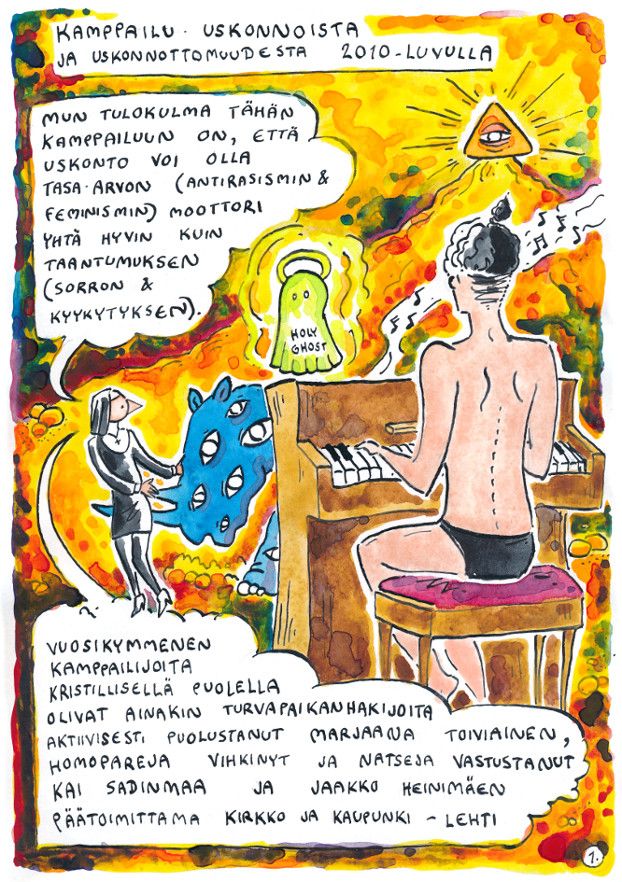 KAMPPAILU · USKONNOISTA
JA USKONNOTTOMUUDESTA 2010-LUVULLA
MUN TULOKULMA TÄHÄN
KAMPPAILUUN ON, ETTÄ
USKONTO VOI OLLA
TASA-ARVON (ANTIRASISMIN &
FEMINISMIN) MOOTTORI
YHTÄ HYVIN KUIN
TAANTUMUKSEN
(SORRON &
KYYKYTYKSEN).
HOLY
GHOST
VUOSIKYMMENEN
KAMPPAILIJOITA
KRISTILLISELLÄ PUOLELLA
OLIVAT AINAKIN TURVAPAIKANHAKIJOITA
AKTIIVISESTI PUOLUSTANUT MARJAANA TOIVIAINEN,
HOMOPAREJA VIHKINYT JA NATSEJA VASTUSTANUT
KAI SADINMAA JA JAAKKO HEINIMÄEN
PÄÄTOIMITTAMA KIRKKO JA KAUPUNKI - LEHTI
1.